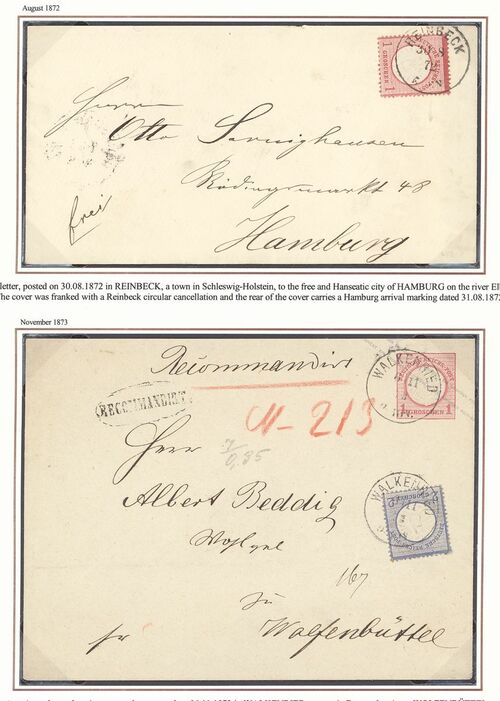 August 1872
REINBECK
30 8
72
1 GROSCHEN 1
Herrn
Otto
Rödingsmarkt 48
frei
Hamburg
letter, posted on 30.08.1872 in REINBECK, a town in Schleswig-Holstein, to the free and Hanseatic city of HAMBURG on the river El
The cover was franked with a Reinbeck circular cancellation and the rear of the cover carries a Hamburg arrival marking dated 31.08.187
November 1873
Recommandirt
WALKENRIED
11
1 GROSCHEN 1
RECOMMANDIRT.
Herrn
Albert Beddig
WALKENRIED
11
Wohlgel
167
zu
fr
Wolfenbüttel